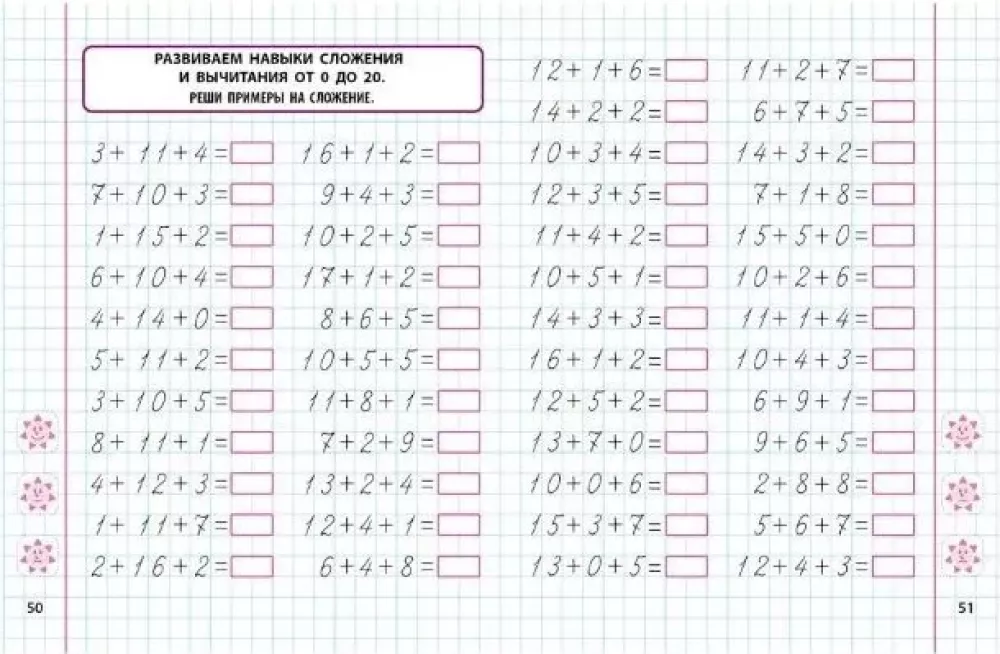 РАЗВИВАЕМ НАВЫКИ СЛОЖЕНИЯ
И ВЫЧИТАНИЯ ОТ 0 ДО 20.
РЕШИ ПРИМЕРЫ НА СЛОЖЕНИЕ.
3+ 11+4= 16+1+2=
7+10+3= 9+4+3=
1+15+2= 10+2+5=
6+10+4= 17+1+2=
4+14+0= 8+6+5=
5+ 11+2= 10+5+5=
3+10+5= 11+8+1=
8+ 11+1= 7+2+9=
4+12+3= 13+2+4=
1+ 11+7= 12+4+1=
2+16+2= 6+4+8=
50
12+1+6= 11+2+7=
14+2+2= 6+7+5=
10+3+4= 14+3+2=
12+3+5= 7+1+8=
11+4+2= 15+5+0=
10+5+1= 10+2+6=
14+3+3= 11+1+4=
16+1+2= 10+4+3=
12+5+2= 6+9+1=
13+7+0= 9+6+5=
10+0+6= 2+8+8=
15+3+7= 5+6+7=
13+0+5= 12+4+3=
51